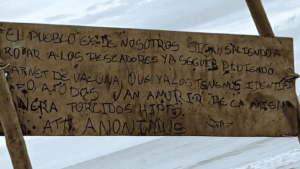 EL PUEBLO ES DE NOSOTROS SIGAN SALIENDO A
ROBAR A LOS PESCADORES YA SEGUIR PIDIENDO
CARNET DE VACUNA, QUE YA LOS TENEMOS IDENTI
A TODOS VAN A MORIR DE LA MISMA
NERA TORCIDOS HP
ATT: ANONIMUS